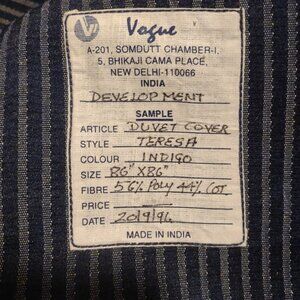 Vogue
A-201, SOMDUTT CHAMBER-I,
5, BHIKAJI CAMA PLACE,
NEW DELHI-110066
INDIA
DEVELOPMENT
SAMPLE
ARTICLE DUVET COVER
STYLE TERESA
COLOUR INDIGO
SIZE 86"X86"
FIBRE 56% Poly 44% COT.
PRICE
DATE 20/9/96
MADE IN INDIA